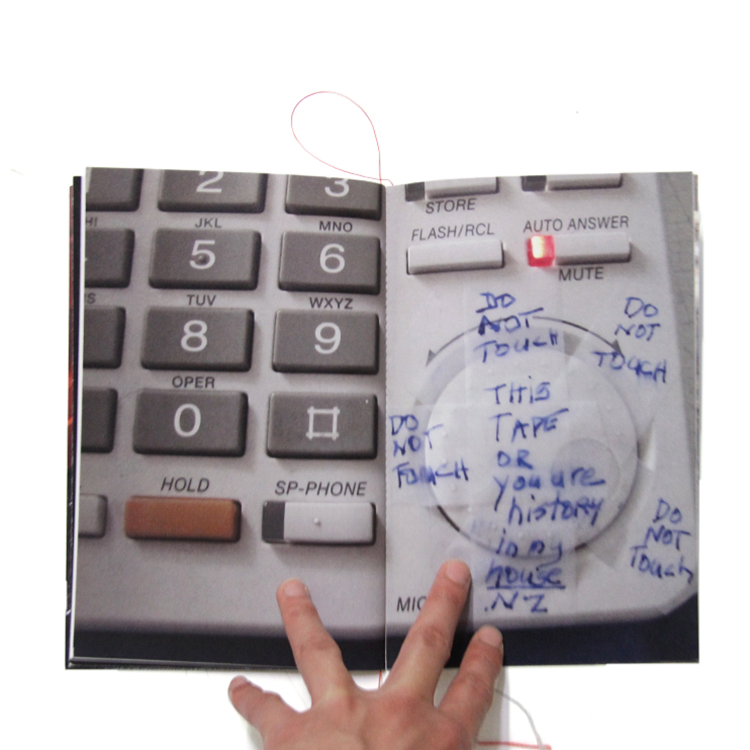 2
3
HI
JKL
MNO
5
6
S
TUV
WXYZ
8
9
OPER
0
HOLD
SP-PHONE
STORE
FLASH/RCL
AUTO ANSWER
MUTE
DO
NOT
TOUCH
DO
NOT
TOUCH
DO
NOT
TOUCH
THIS
TAPE
OR
you are
history
in my
house
.NZ
DO
NOT
Touch
MIC